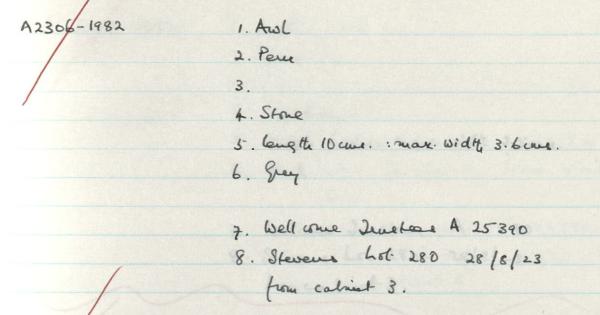 A2306-1982 1. Awl
2. Peru
3.
4. Stone
5. length 10cms. : max. width 3.6cms.
6. Grey
7. Wellcome Trustees A 25390
8. Stevens Lot 280 28/8/23
from cabinet 3.